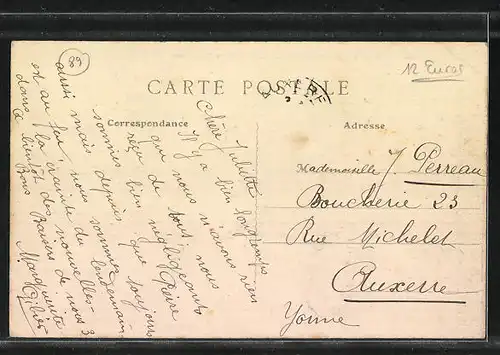 89
12 Euros
CARTE POSTALE
Correspondance
Adresse
Chère Juliette
Il y a bien longtemps
que nous n'avions rien
reçu de tous, nous
sommes bien négligeants
aussi mais depuis que
nous sommes toujours
est au feu, la crainte du lendemain
dans des nouvelles
à bientôt de nous 3
Bons Baisers
Marguerite
Mademoiselle J. Perreau
Boucherie 23
Rue Michelet
Auxerre
Yonne